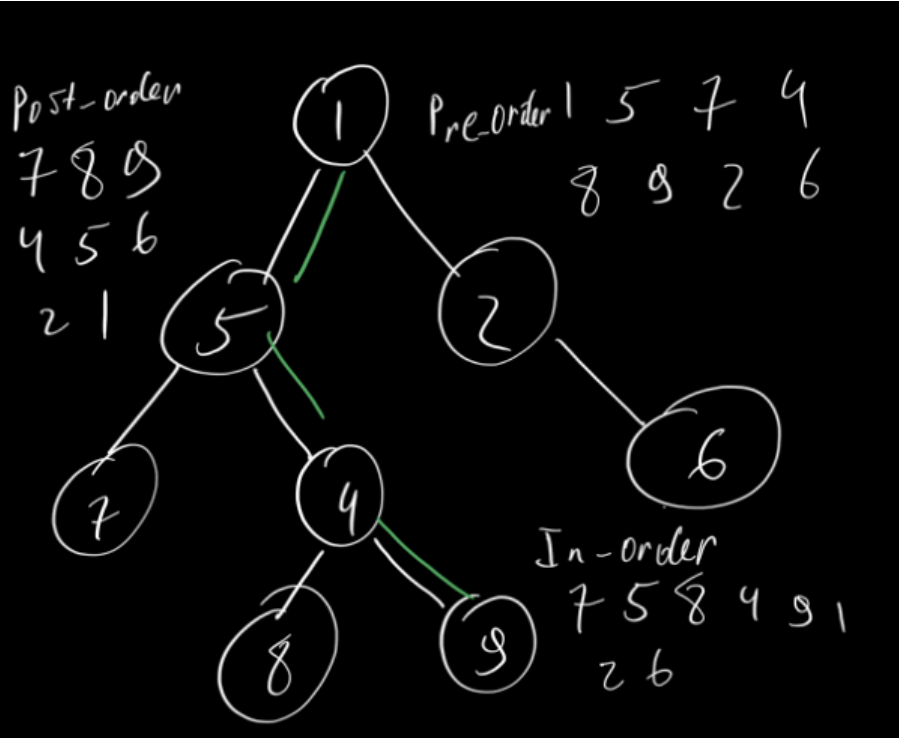 Post-order
7 8 9
4 5 6
2 1
Pre-order 1 5 7 4
8 9 2 6
1
5
2
7
4
6
8
9
In-order
7 5 8 4 9 1
2 6